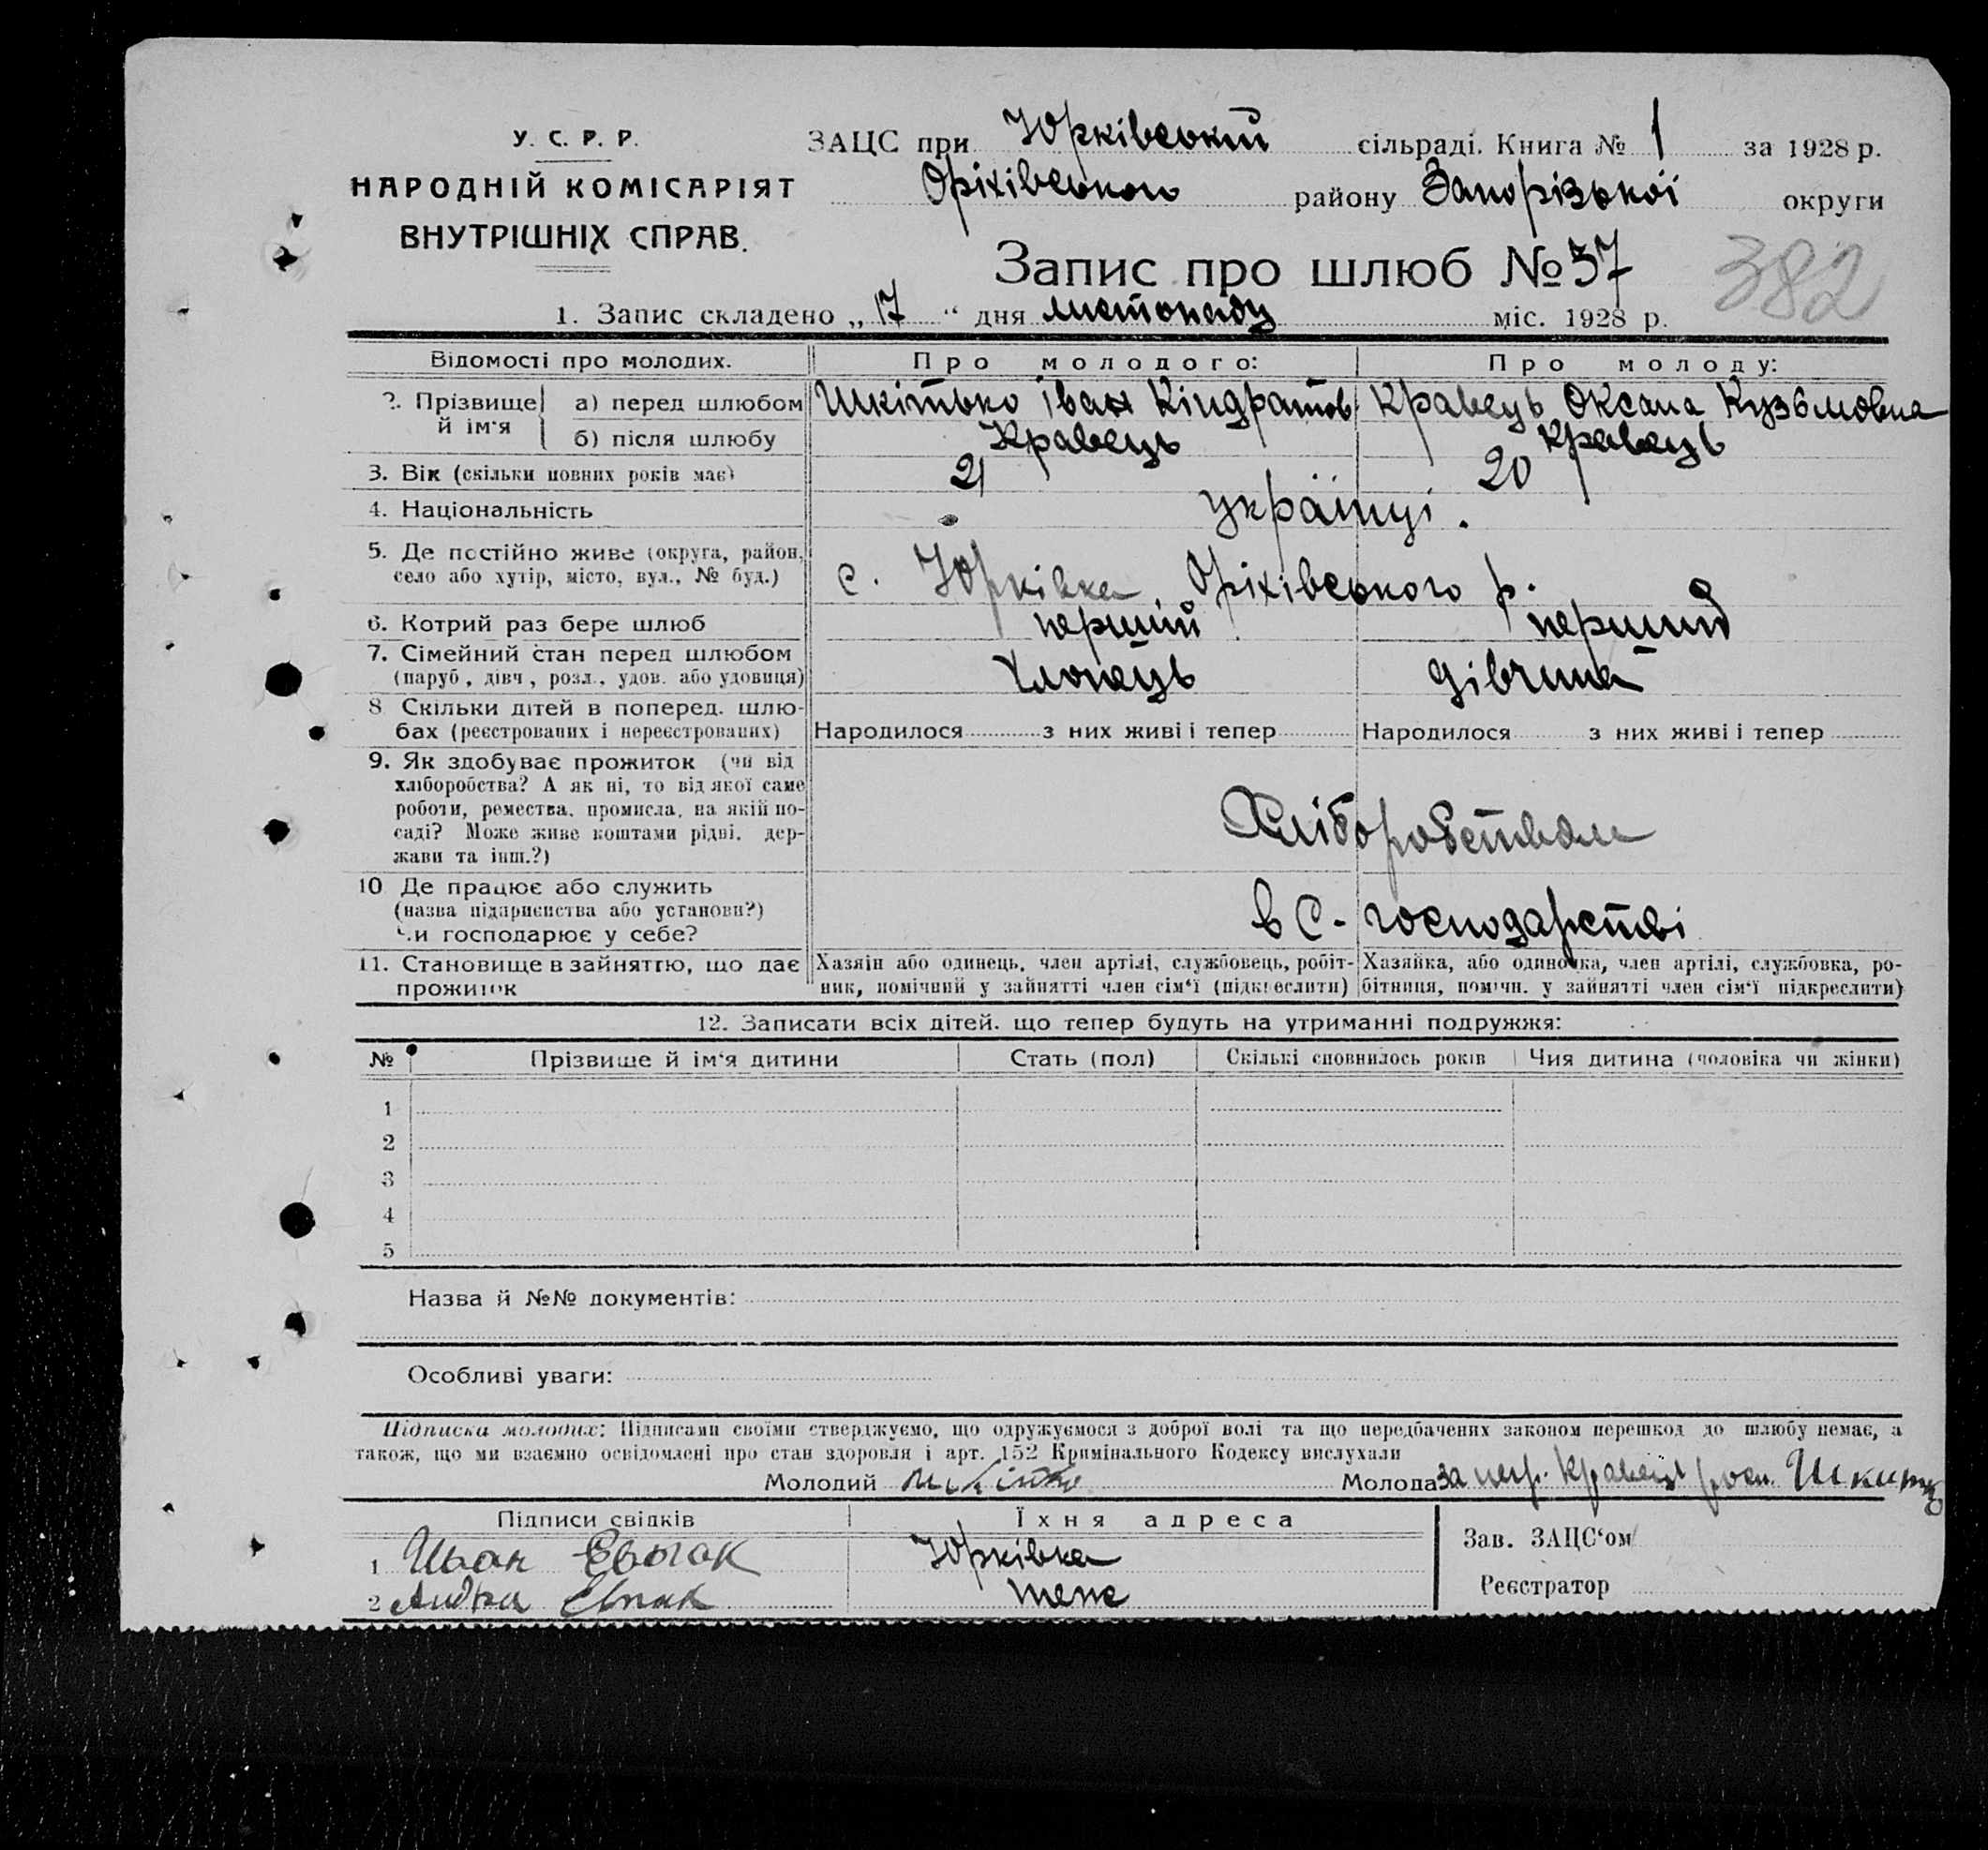 У. С. Р. Р.
НАРОДНІЙ КОМІСАРІЯТ
ВНУТРІШНІХ СПРАВ.
ЗАЦС при Юрківській сільраді. Книга № 1 за 1928 р.
Оріхівського району Запорізької округи
Запис про шлюб № 37
382
1. Запис складено „17“ дня листопаду міс. 1928 р.
Відомості про молодих. Про молодого: Про молоду:
2. Прізвище й ім'я а) перед шлюбом Шкітько Іван Кіндратов. Кравець Оксана Кузьмовна
б) після шлюбу Кравець Кравець
3. Вік (скільки повних років має) 21 20
4. Національність українці.
5. Де постійно живе (округа, район, село або хутір, місто, вул., № буд.) с. Юрківка, Оріхівського р.
6. Котрий раз бере шлюб перший перший
7. Сімейний стан перед шлюбом (паруб., дівч., розл., удов. або удовиця) хлопець дівчина
8 Скільки дітей в поперед. шлюбах (реєстрованих і нереєстрованих) Народилося з них живі і тепер Народилося з них живі і тепер
9. Як здобуває прожиток (чи від
хліборобства? А як ні, то від якої саме
роботи, ремества, промисла, на якій по-
саді? Може живе коштами рідні, дер-
жави та інш.?)
Хліборобством
10 Де працює або служить
(назва підприємства або установи?)
Чи господарює у себе?
в С. господарстві
11. Становище в зайняттю, що дає прожиток
Хазяїн або одинець, член артілі, службовець, робіт-
ник, помічний у зайнятті член сім'ї (підкреслити)
Хазяйка, або одиночка, член артілі, службовка, ро-
бітниця, помічн. у зайнятті член сім'ї підкреслити)
12. Записати всіх дітей. що тепер будуть на утриманні подружжя:
№ Прізвище й ім'я дитини Стать (пол) Скількі сповнилось років Чия дитина (чоловіка чи жінки)
1
2
3
4
5
Назва й №№ документів:
Особливі уваги:
Підписка молодих: Підписами своїми стверджуємо, що одружуємося з доброї волі та що передбачених законом перешкод до шлюбу немає, а
також, що ми взаємно освідомлені про стан здоровля і арт. 152 Кримінального Кодексу вислухали
Молодий Шкітко Молода за неп. Кравець росп.
Підписи свідків Їхня адреса Зав. ЗАЦС'ом
1 Иван Юрківка
2 теж Реєстратор